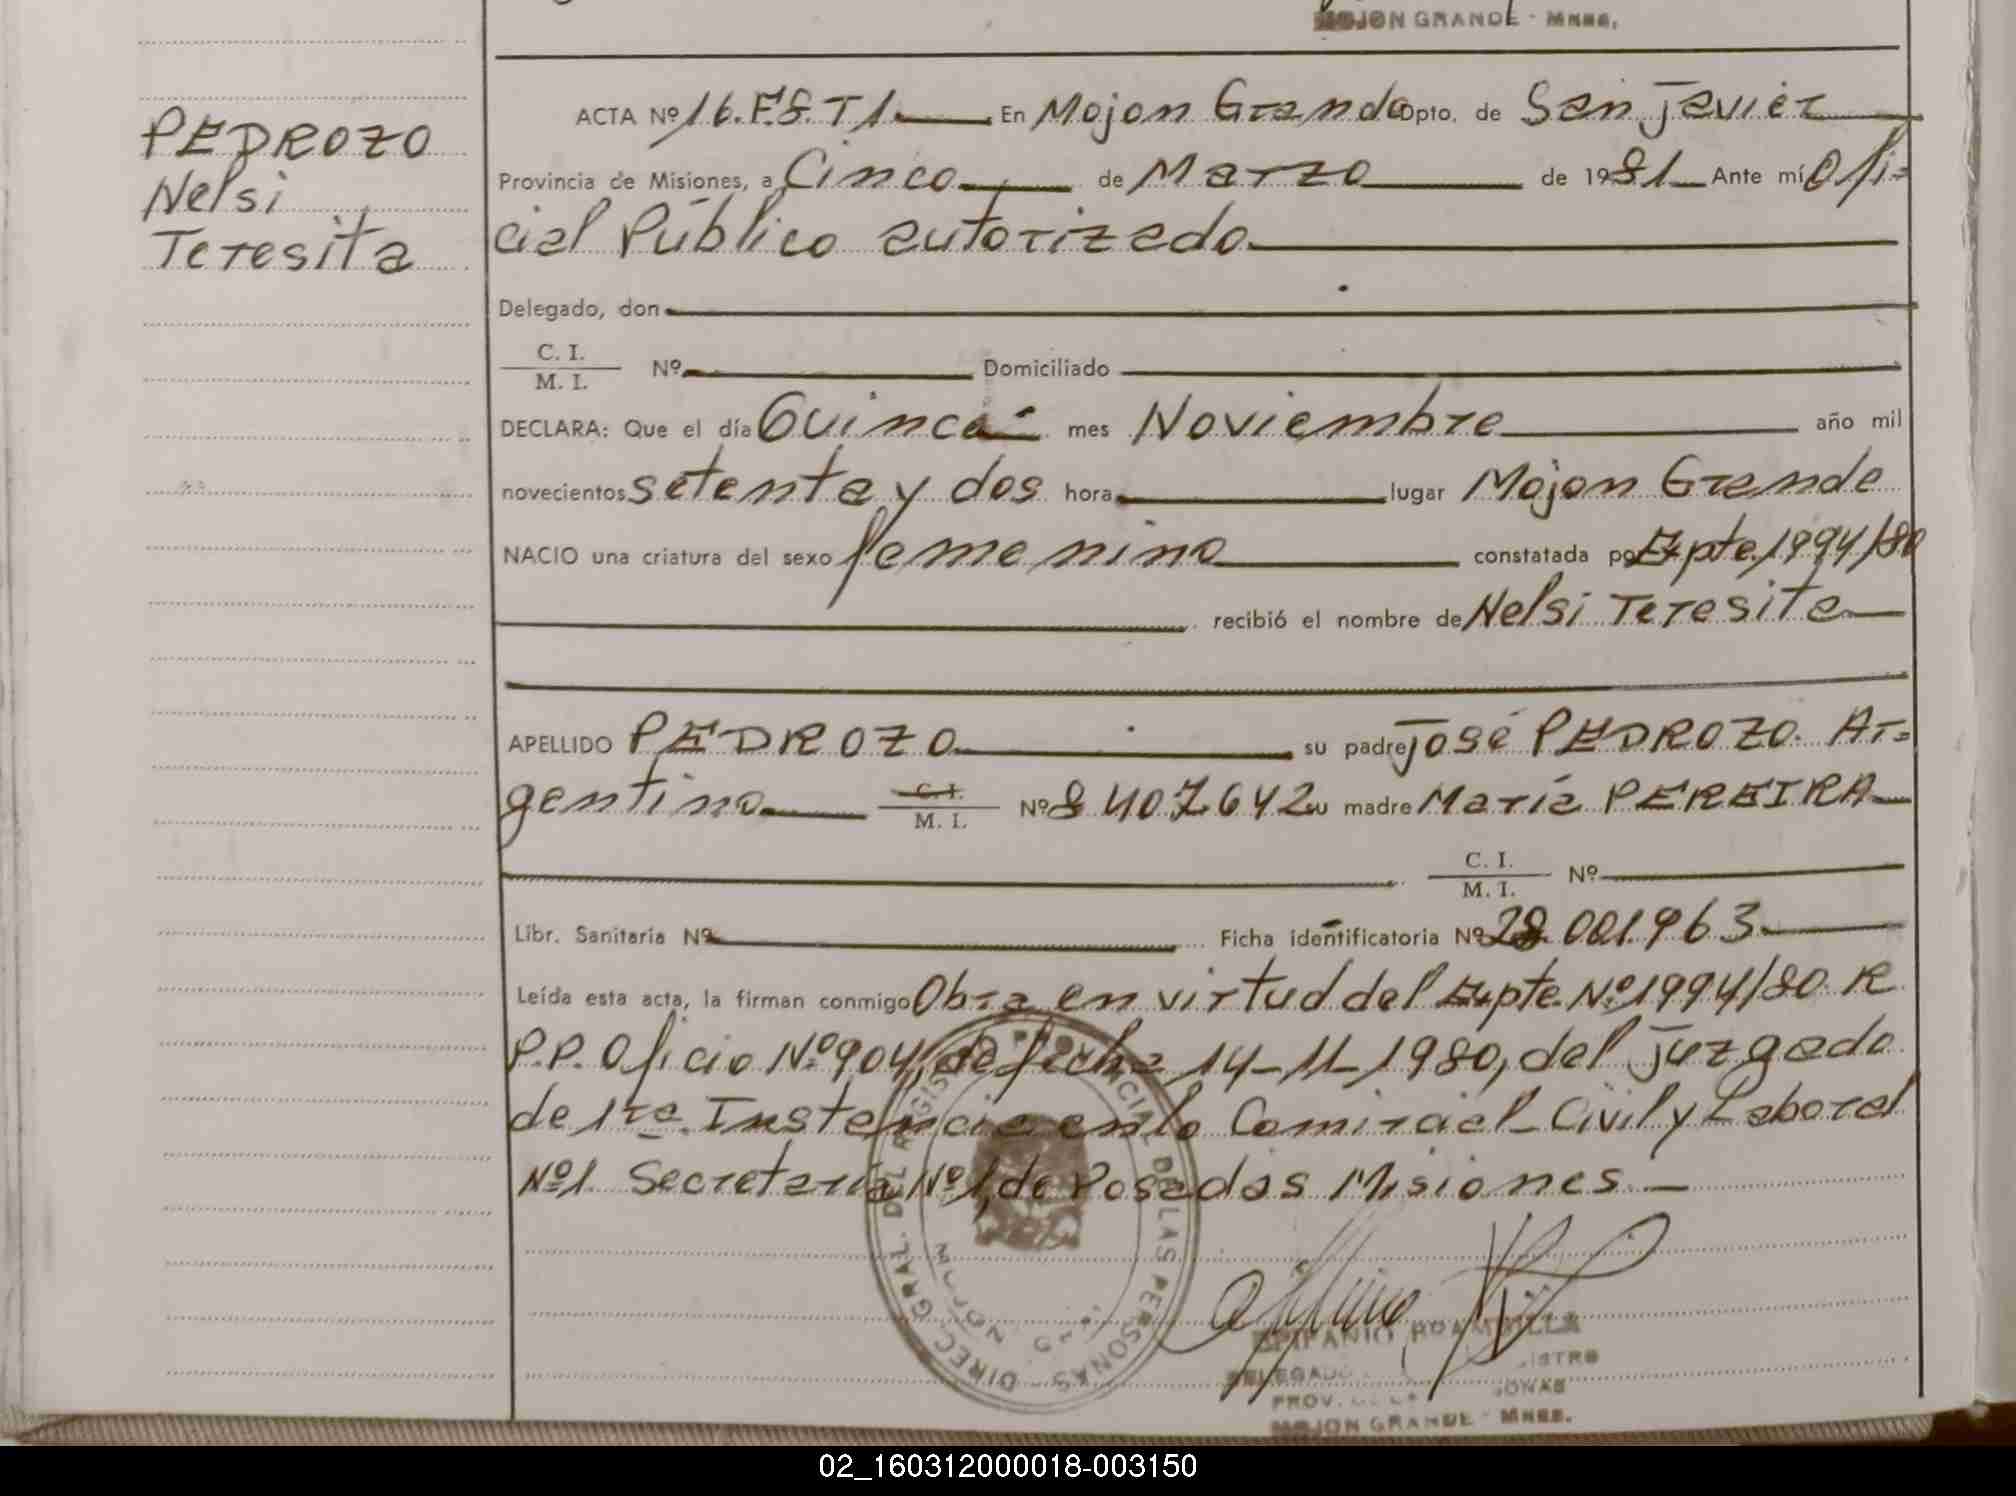 MOJON GRANDE - Mnes.
PEDROZO
Nelsi
Teresita
ACTA Nº 16. F.8. T1. En Mojon Grande Dpto. de San Javier
Provincia de Misiones, a Cinco de Marzo de 1981 Ante mí Ofi=
cial Público autorizado
Delegado, don
C. I.
M. I. Nº Domiciliado
DECLARA: Que el día Quince mes Noviembre año mil
novecientos setenta y dos hora lugar Mojon Grande
NACIO una criatura del sexo femenino constatada por Expte. 1994/80
recibió el nombre de Nelsi Teresita
APELLIDO PEDROZO su padre José PEDROZO. Ar=
gentino C. I.
M. I. Nº 8407642 su madre María PEREIRA
C. I.
M. I. Nº
Libr. Sanitaria Nº Ficha identificatoria Nº 28.001.963
Leída esta acta, la firman conmigo Obra en virtud del Expte. Nº 1994/80. R
P.P. Oficio Nº 904, de fecha 14-11-1980, del Juzgado
de 1ra. Instancia en lo Comircial_Civil y Laboral
Nº1. Secretaría Nº 1, de Posadas Misiones.
DIREC. GRAL. DEL REGISTRO PROVINCIAL DE LAS PERSONAS
EPIFANIO
DELEGADO
PROV. DE
MOJON GRANDE - Mnes.
02_160312000018-003150